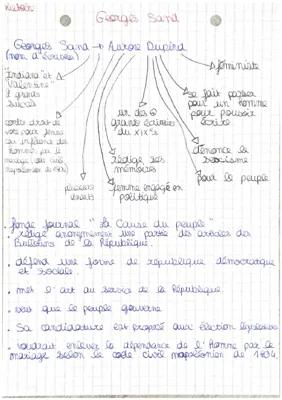 Georges Sand
Georges Sand → Aurore Dupin
(nom d'écrivain)
"Indiana" et
"Valentine"
2 grands
succès
contre droit de
vote pour femme
car influence des
Hommes par le
mariage
un des
grands écrivains
du XIXe s
rédige ses
mémoires
plusieurs
amants
femme engagé en
politique
féministe
se fait passer
pour un homme
pour pouvoir
écrire
dénonce le
sexisme
pour le peuple
fonde journal "La Cause du peuple"
• rédige anonymement une partie des articles des
Bulletins de la République.
• défend une forme de république démocratique
et sociale.
• met l'art au service de la République.
• veut que le peuple gouverne
• Sa candidature est proposé aux élection législatives
• voudrait enlever la dépendance de l'Homme par le
mariage selon le code civil napoléonien de 1804.